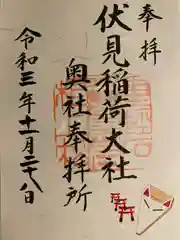 奉拝
伏見稲荷大社
奥社奉拝所
令和三年十一月二十八日